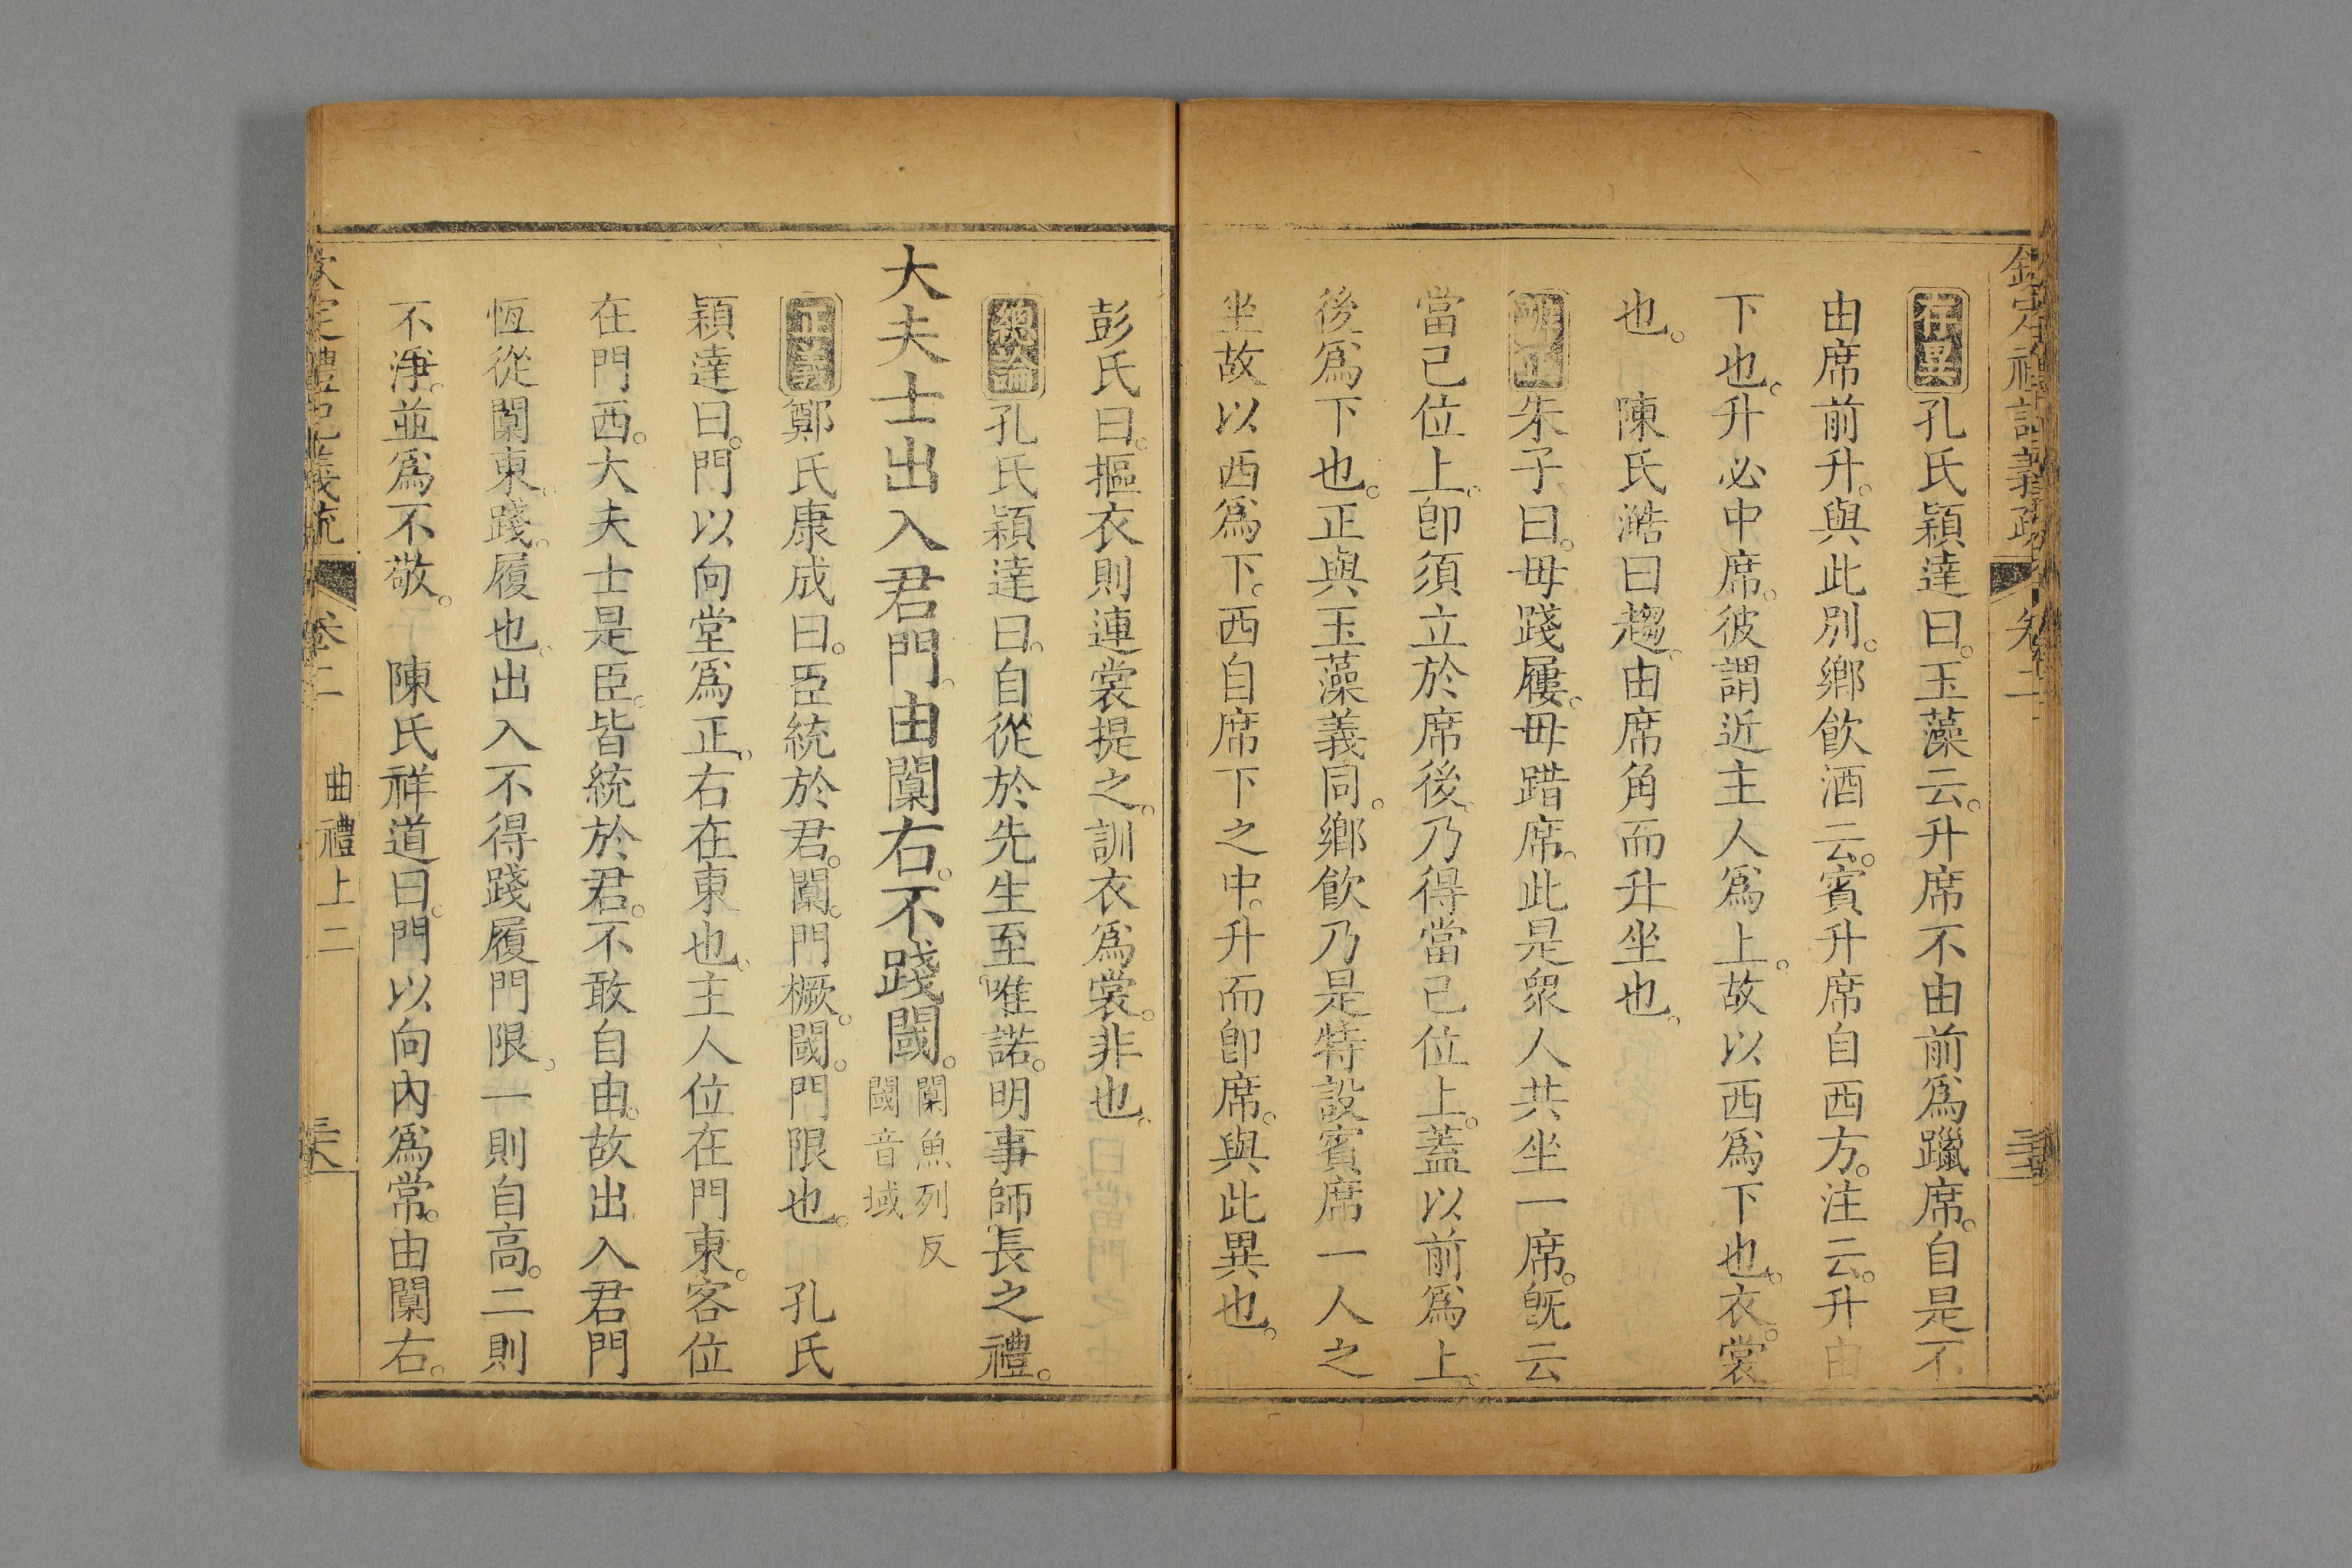 欽定禮記義疏 卷二
存異孔氏穎達曰。玉藻云。升席不由前爲躐席。自是不
由席前升。與此別。鄉飲酒云。賓升席自西方。注云。升由
下也。升必中席。彼謂近主人爲上。故以西爲下也。衣裳
也。 陳氏澔曰趨。由席角而升坐也。
辨正朱子曰。毋踐屨。毋踖席。此是衆人共坐一席。旣云
當己位上。卽須立於席後。乃得當己位上。蓋以前爲上。
後爲下也。正與玉藻義同。鄉飲乃是特設賓席一人之
坐故以西爲下。西自席下之中。升而卽席。與此異也。
彭氏曰。摳衣則連裳提之。訓衣爲裳。非也。
總論孔氏穎達曰。自從於先生至唯諾。明事師長之禮。
大夫士出入君門。由闑右。不踐閾。闑魚列反
閾音域
正義鄭氏康成曰。臣統於君。闑。門橛。閾。門限也。 孔氏
穎達曰。門以向堂爲正。右在東也。主人位在門東。客位
在門西。大夫士是臣。皆統於君。不敢自由。故出入君門
恆從闑東。踐。履也。出入不得踐履門限。一則自高。二則
不淨。並爲不敬。 陳氏祥道曰。門以向內爲常。由闑右。
欽定禮記義疏 卷二 曲禮上二